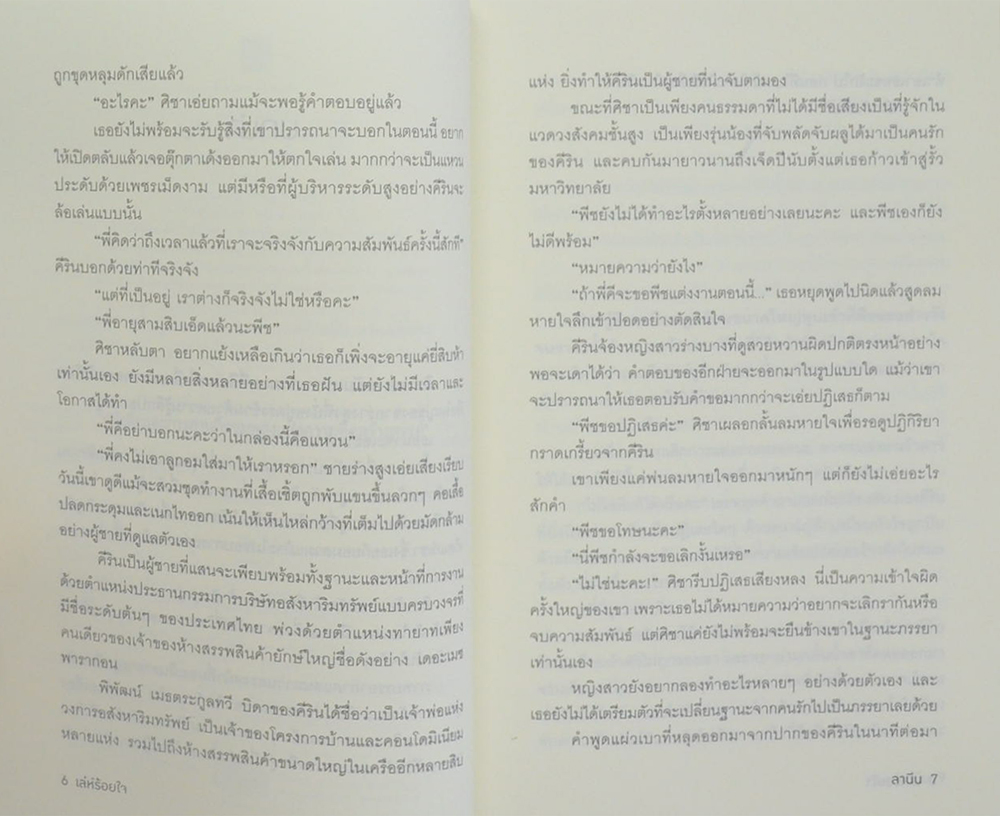 ถูกขุดหลุมดักเสียแล้ว
“อะไรคะ” ศิชาเอ่ยถามแม้จะพอรู้คำตอบอยู่แล้ว
เธอยังไม่พร้อมจะรับรู้สิ่งที่เขาปรารถนาจะบอกในตอนนี้ อยาก
ให้เปิดตลับแล้วเจอตุ๊กตาเด้งออกมาให้ตกใจเล่น มากกว่าจะเป็นแหวน
ประดับด้วยเพชรเม็ดงาม แต่มีหรือที่ผู้บริหารระดับสูงอย่างคีรินจะ
ล้อเล่นแบบนั้น
“พี่คิดว่าถึงเวลาแล้วที่เราจะจริงจังกับความสัมพันธ์ครั้งนี้สักที”
คีรินบอกด้วยท่าทีจริงจัง
“แต่ที่เป็นอยู่ เราต่างก็จริงจังไม่ใช่หรือคะ”
“พี่อายุสามสิบเอ็ดแล้วนะพีช”
ศิชาหลับตา อยากแย้งเหลือเกินว่าเธอก็เพิ่งจะอายุแค่ยี่สิบห้า
เท่านั้นเอง ยังมีหลายสิ่งหลายอย่างที่เธอฝัน แต่ยังไม่มีเวลาและ
โอกาสได้ทำ
“พี่คีอย่าบอกนะคะว่าในกล่องนี้คือแหวน”
“พี่คงไม่เอาลูกอมใส่มาให้เราหรอก” ชายร่างสูงเอ่ยเสียงเรียบ
วันนี้เขาดูดีแม้จะสวมชุดทำงานที่เสื้อเชิ้ตถูกพับแขนขึ้นลวกๆ คอเสื้อ
ปลดกระดุมและเนกไทออก เน้นให้เห็นไหล่กว้างที่เต็มไปด้วยมัดกล้าม
อย่างผู้ชายที่ดูแลตัวเอง
คีรินเป็นผู้ชายที่แสนจะเพียบพร้อมทั้งฐานะและหน้าที่การงาน
ด้วยตำแหน่งประธานกรรมการบริษัทอสังหาริมทรัพย์แบบครบวงจรที่
มีชื่อระดับต้นๆ ของประเทศไทย พ่วงด้วยตำแหน่งทายาทเพียง
คนเดียวของเจ้าของห้างสรรพสินค้ายักษ์ใหญ่ชื่อดังอย่าง เดอะเมซ
พารากอน
พิพัฒน์ เมธตระกูลทวี บิดาของคีรินได้ชื่อว่าเป็นเจ้าพ่อแห่ง
วงการอสังหาริมทรัพย์ เป็นเจ้าของโครงการบ้านและคอนโดมิเนียม
หลายแห่ง รวมไปถึงห้างสรรพสินค้าขนาดใหญ่ในเครืออีกหลายสิบ
6 เล่ห์ร้อยใจ
แห่ง ยิ่งทำให้คีรินเป็นผู้ชายที่น่าจับตามอง
ขณะที่ศิชาเป็นเพียงคนธรรมดาที่ไม่ได้มีชื่อเสียงเป็นที่รู้จักใน
แวดวงสังคมชั้นสูง เป็นเพียงรุ่นน้องที่จับพลัดจับผลูได้มาเป็นคนรัก
ของคีริน และคบกันมายาวนานถึงเจ็ดปีนับตั้งแต่เธอก้าวเข้าสู่รั้ว
มหาวิทยาลัย
“พีชยังไม่ได้ทำอะไรตั้งหลายอย่างเลยนะคะ และพีชเองก็ยัง
ไม่ดีพร้อม”
“หมายความว่ายังไง”
“ถ้าพี่คีจะขอพีชแต่งงานตอนนี้...” เธอหยุดพูดไปนิดแล้วสูดลม
หายใจลึกเข้าปอดอย่างตัดสินใจ
คีรินจ้องหญิงสาวร่างบางที่ดูสวยหวานผิดปกติตรงหน้าอย่าง
พอจะเดาได้ว่า คำตอบของอีกฝ่ายจะออกมาในรูปแบบใด แม้ว่าเขา
จะปรารถนาให้เธอตอบรับคำขอมากกว่าจะเอ่ยปฏิเสธก็ตาม
“พีชขอปฏิเสธค่ะ” ศิชาเผลอกลั้นลมหายใจเพื่อรอดูปฏิกิริยา
กราดเกรี้ยวจากคีริน
เขาเพียงแค่พ่นลมหายใจออกมาหนักๆ แต่ก็ยังไม่เอ่ยอะไร
สักคำ
“พีชขอโทษนะคะ”
“นี่พีชกำลังจะขอเลิกงั้นเหรอ”
“ไม่ใช่นะคะ!” ศิชารีบปฏิเสธเสียงหลง นี่เป็นความเข้าใจผิด
ครั้งใหญ่ของเขา เพราะเธอไม่ได้หมายความว่าอยากจะเลิกรากันหรือ
จบความสัมพันธ์ แต่ศิชาแค่ยังไม่พร้อมจะยืนข้างเขาในฐานะภรรยา
เท่านั้นเอง
หญิงสาวยังอยากลองทำอะไรหลายๆ อย่างด้วยตัวเอง และ
เธอยังไม่ได้เตรียมตัวที่จะเปลี่ยนฐานะจากคนรักไปเป็นภรรยาเลยด้วย
คำพูดแผ่วเบาที่หลุดออกมาจากปากของคีรินในนาทีต่อมา
ลานีน 7